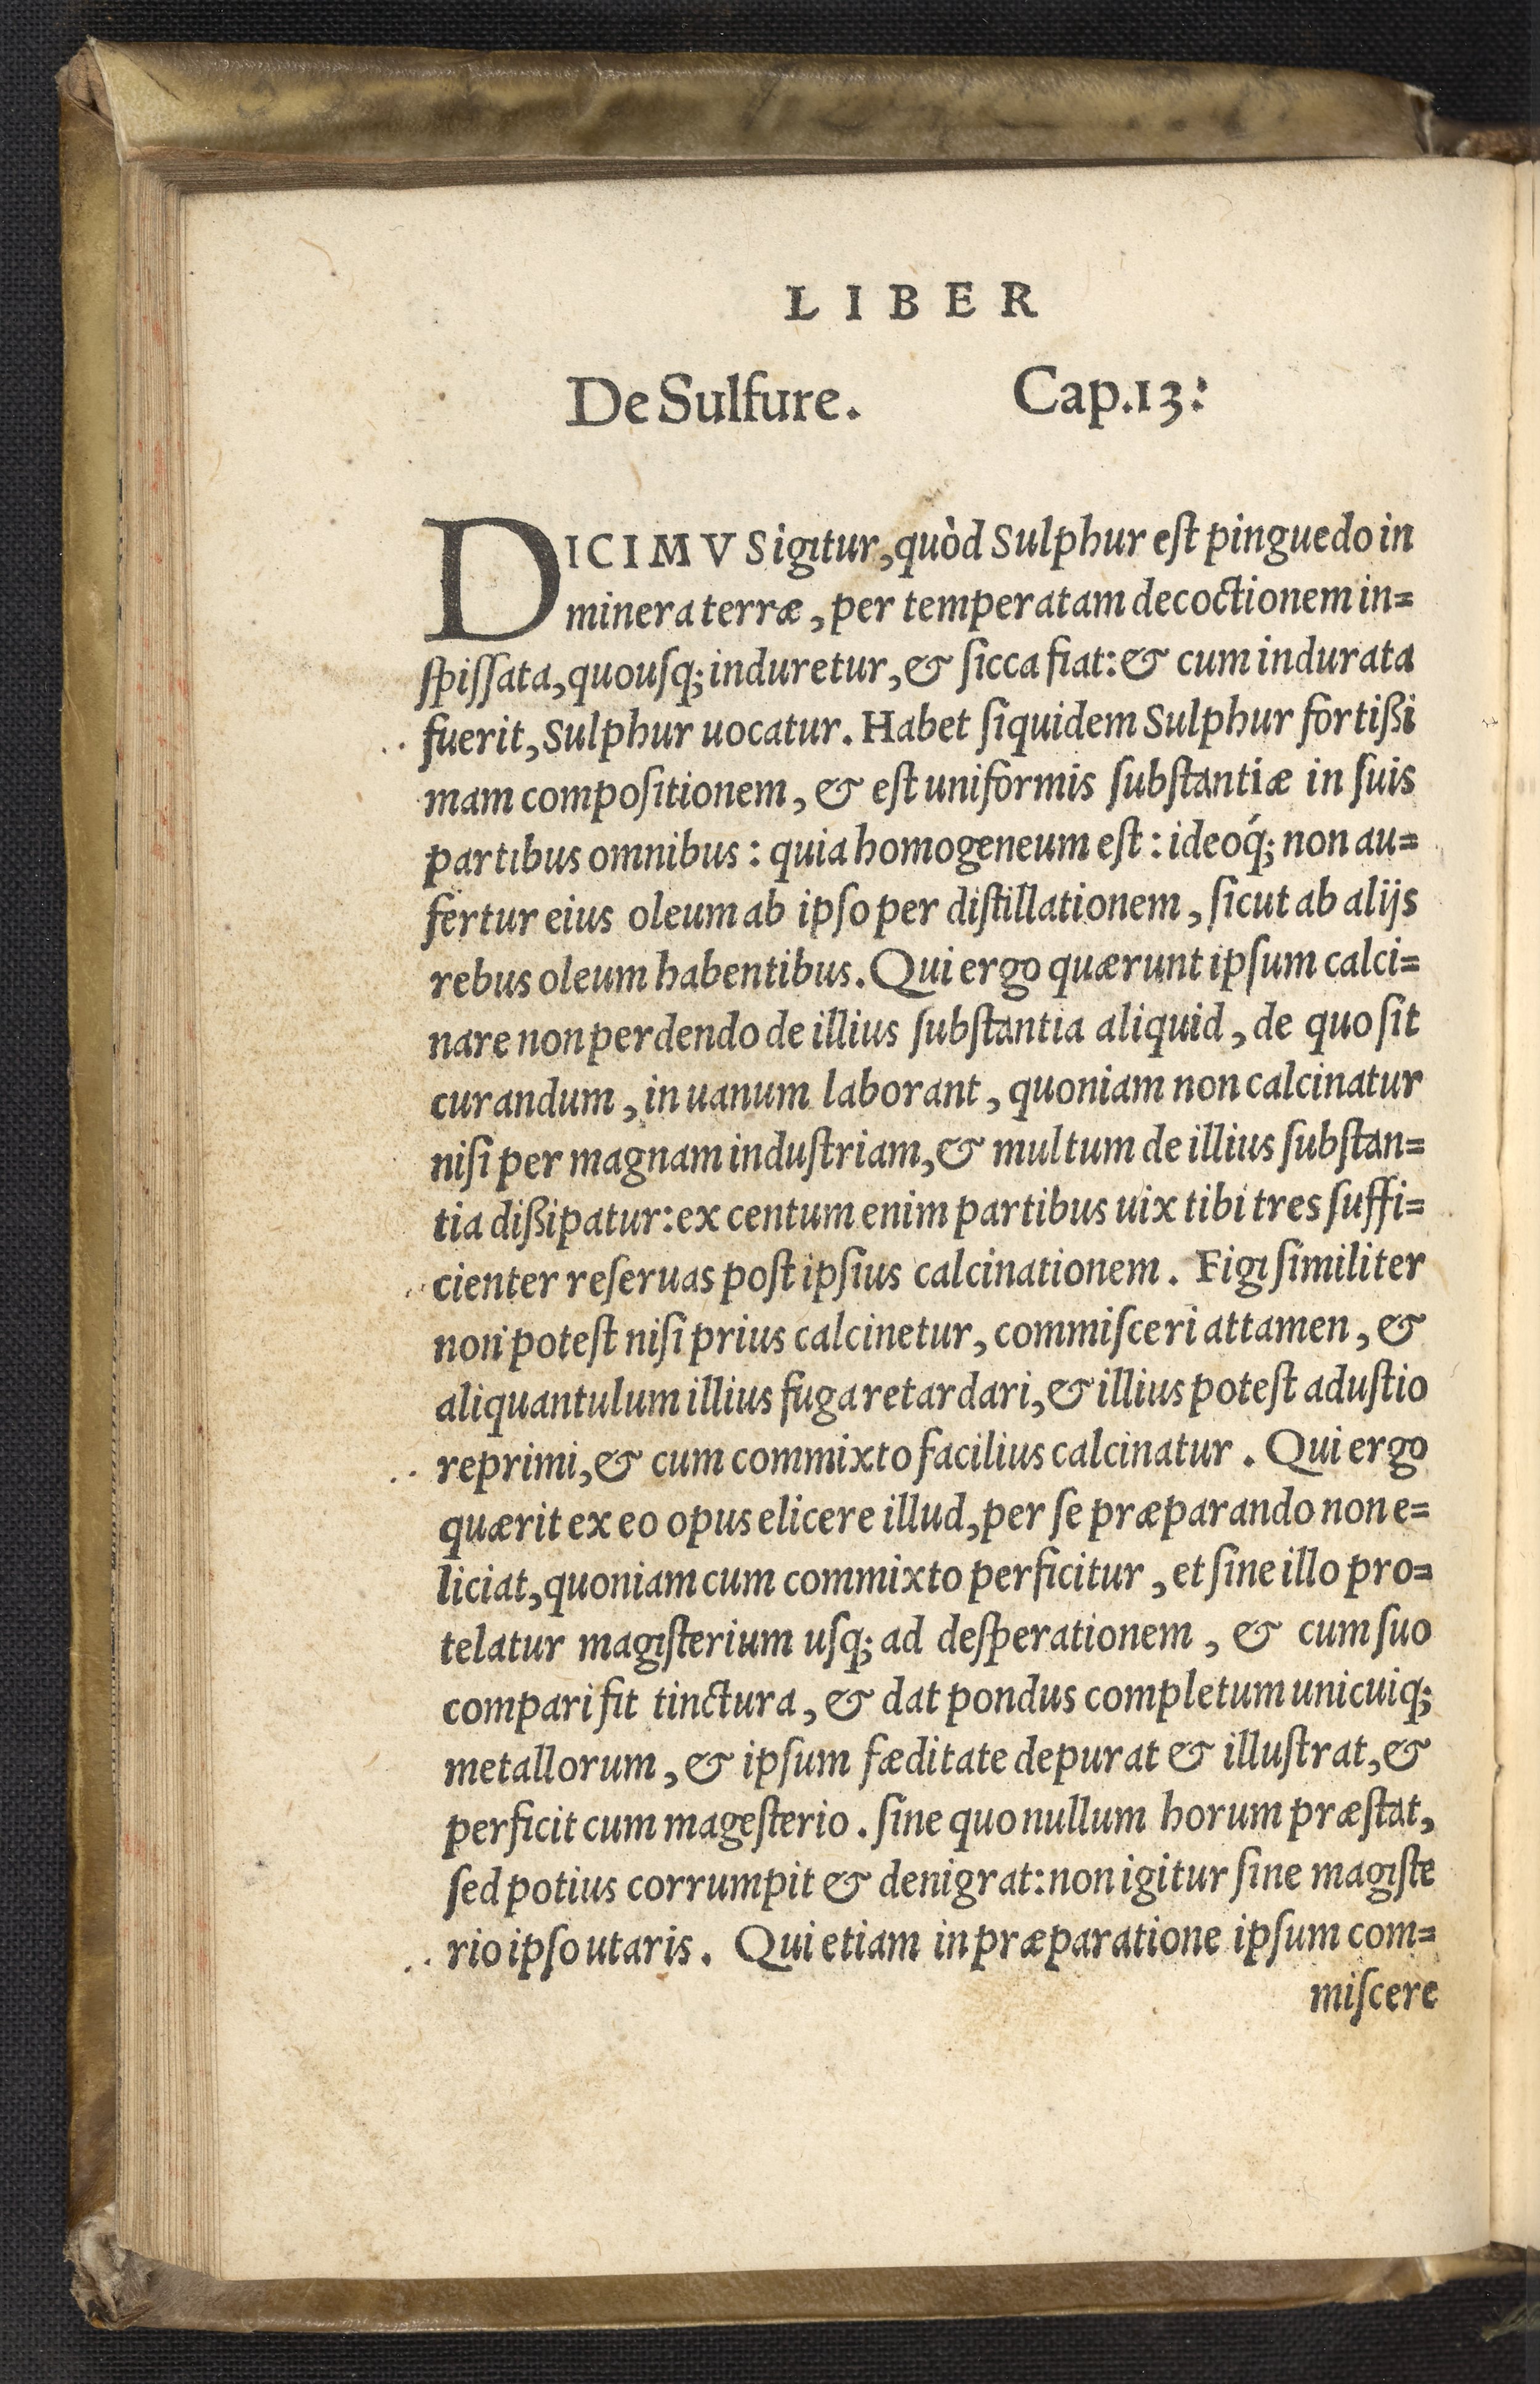 LIBER
De Sulfure. Cap.13:
DICIMVS igitur, quòd Sulphur eſt pinguedo in
minera terræ, per temperatam decoctionem in=
ſpiſſata, quouſq; induretur, & ſicca fiat: & cum indurata
fuerit, Sulphur uocatur. Habet ſiquidem Sulphur fortißi
mam compoſitionem, & eſt uniformis ſubſtantiæ in ſuis
partibus omnibus: quia homogeneum eſt: ideoq́; non au=
fertur eius oleum ab ipſo per diſtillationem, ſicut ab alijs
rebus oleum habentibus. Qui ergo quærunt ipſum calci=
nare non perdendo de illius ſubſtantia aliquid, de quo ſit
curandum, in uanum laborant, quoniam non calcinatur
niſi per magnam induſtriam, & multum de illius ſubſtan=
tia dißipatur: ex centum enim partibus uix tibi tres ſuffi=
cienter reſeruas poſt ipſius calcinationem. Figi ſimiliter
non poteſt niſi prius calcinetur, commiſceri attamen, &
aliquantulum illius fuga retardari, & illius poteſt aduſtio
reprimi, & cum commixto facilius calcinatur. Qui ergo
quærit ex eo opus elicere illud, per ſe præparando non e=
liciat, quoniam cum commixto perficitur, et ſine illo pro=
telatur magiſterium uſq; ad deſperationem, & cum ſuo
compari fit tinctura, & dat pondus completum unicuiq;
metallorum, & ipſum fæditate depurat & illuſtrat, &
perficit cum mageſterio. ſine quo nullum horum præſtat,
ſed potius corrumpit & denigrat: non igitur ſine magiſte
rio ipſo utaris. Qui etiam in præparatione ipſum com=
miſcere